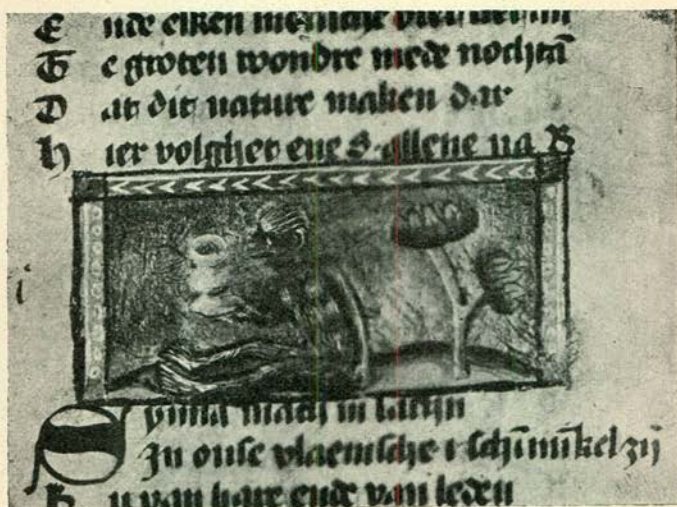 E nde elken
G e groten wondre mede nochtā
D at dit nature maken dar
H ier volghet ene S allene na B
i
Symia mach in latijn
In onse vlaemsche i schimīkel zij
R u van hare ende van leden